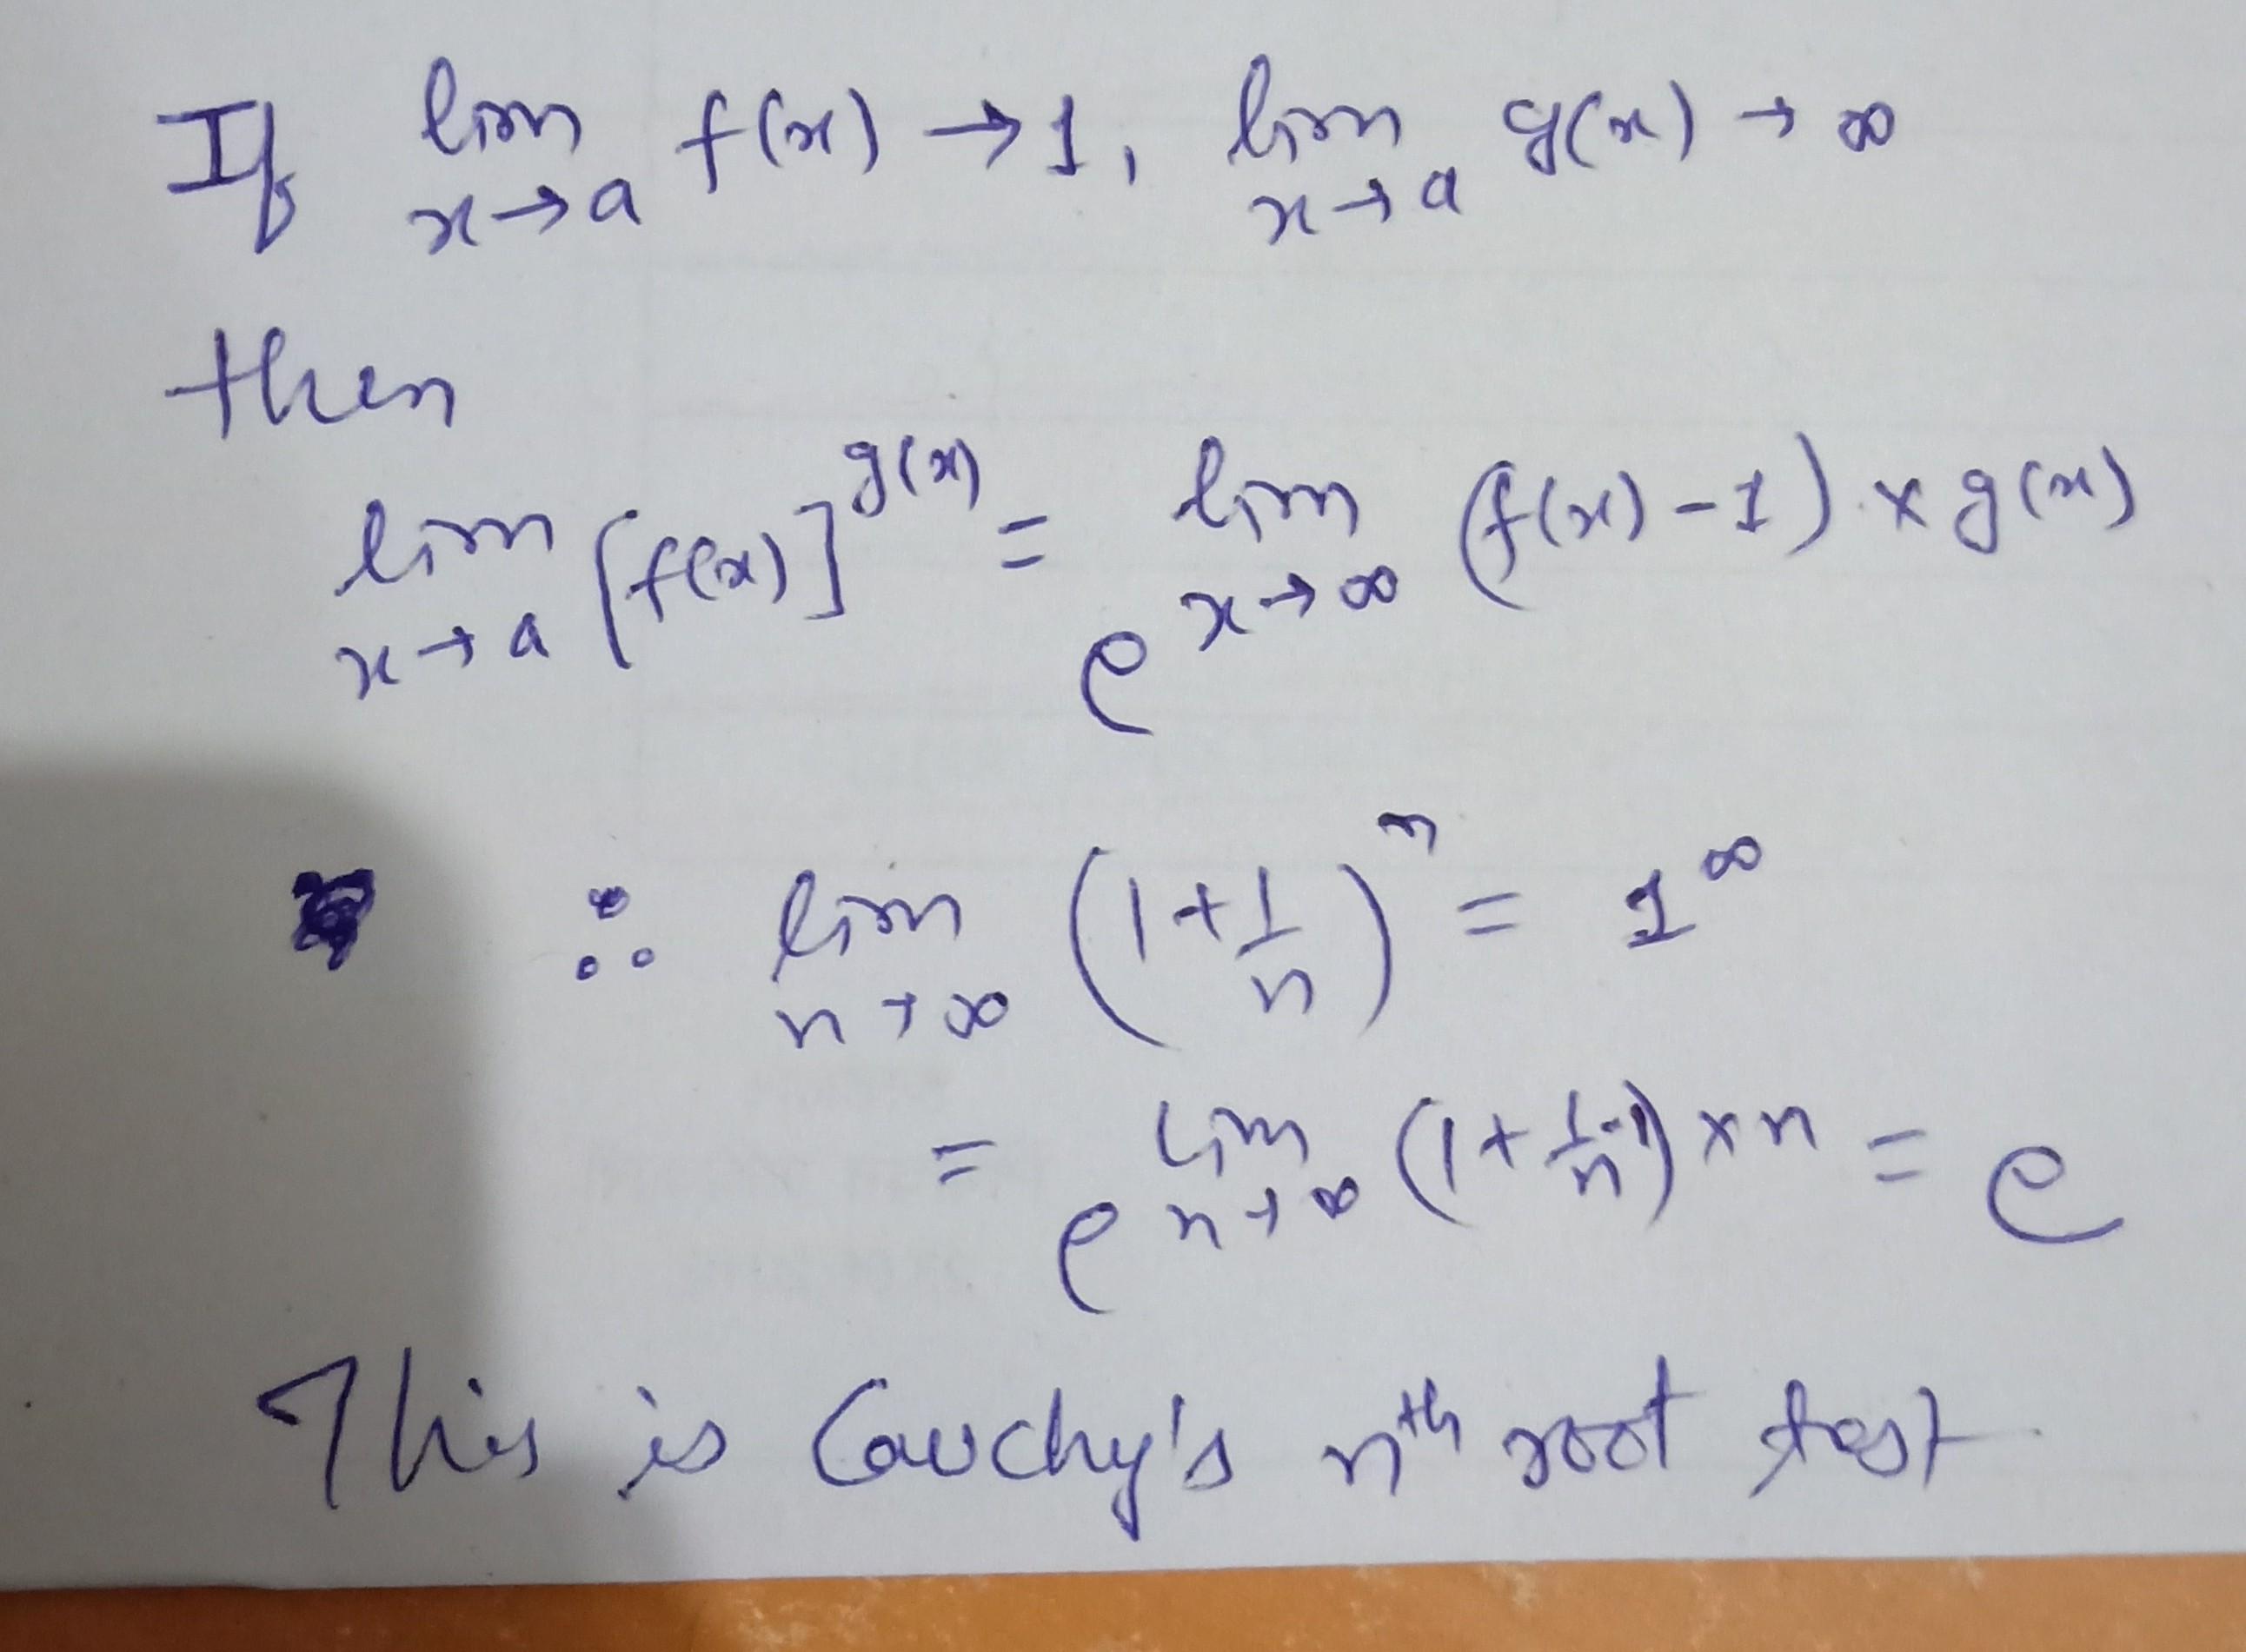 If lim x→a f(x) → 1, lim x→a g(x) → ∞
then
lim x→a [f(x)]^g(x) = e^lim x→∞ (f(x)-1) × g(x)
∴ lim n→∞ (1+1/n)^n = 1^∞
= e^lim n→∞ (1+1/n-1) × n = e
This is Cauchy's nth root test